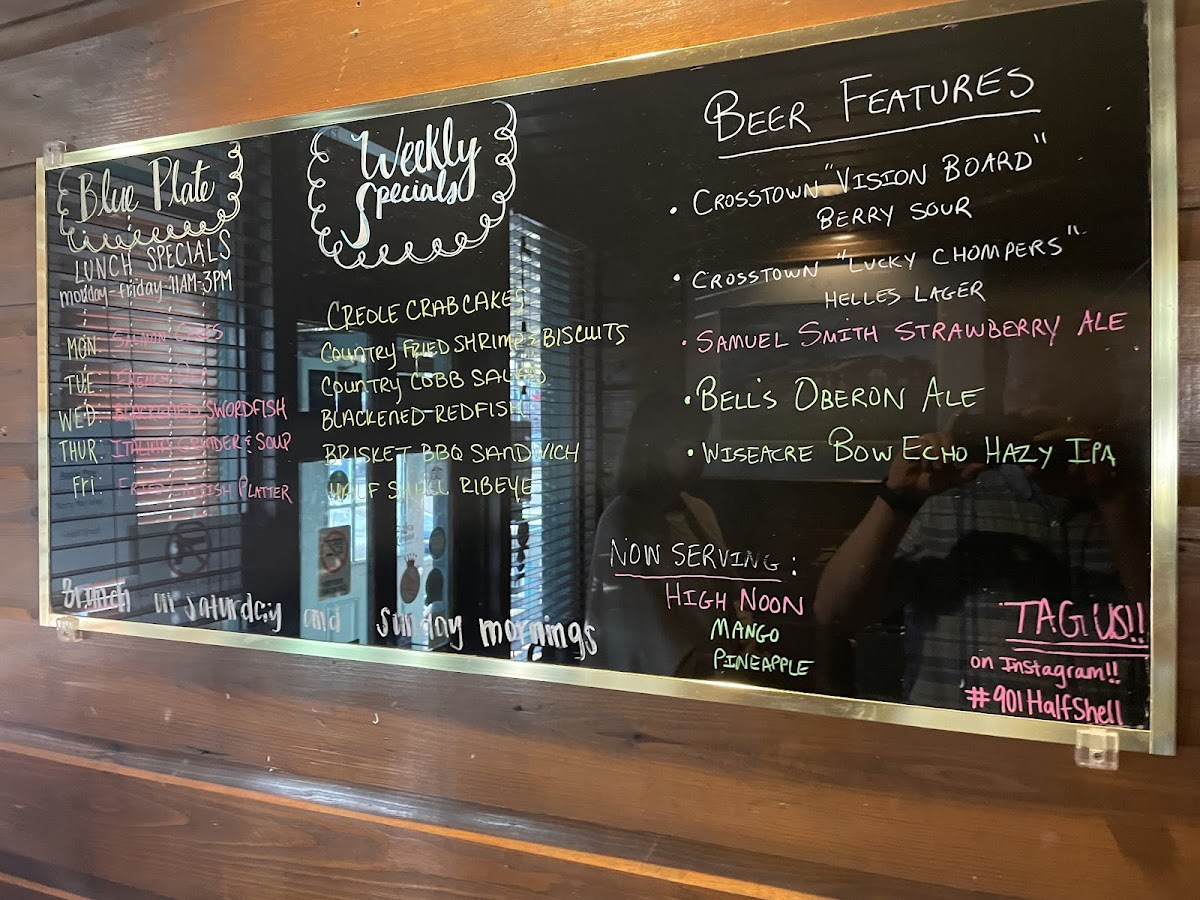 Blue Plate
LUNCH SPECIALS
monday-friday 11AM-3PM
MON: SALMON CAKES
TUE:
WED: BLACKENED SWORDFISH
THUR: ITALIAN GRINDER & SOUP
FRI: FRIED CATFISH PLATTER
Weekly
Specials
CREOLE CRAB CAKES
COUNTRY FRIED SHRIMP & BISCUITS
COUNTRY COBB SALAD
BLACKENED REDFISH
BRISKET BBQ SANDWICH
HALF SHELL RIBEYE
Brunch on saturday and sunday mornings
BEER FEATURES
• CROSSTOWN "VISION BOARD"
BERRY SOUR
• CROSSTOWN "LUCKY CHOMPERS"
HELLES LAGER
• SAMUEL SMITH STRAWBERRY ALE
• BELL'S OBERON ALE
• WISEACRE BOW ECHO HAZY IPA
NOW SERVING:
HIGH NOON
MANGO
PINEAPPLE
TAG US!!
on Instagram!!
#901HalfShell